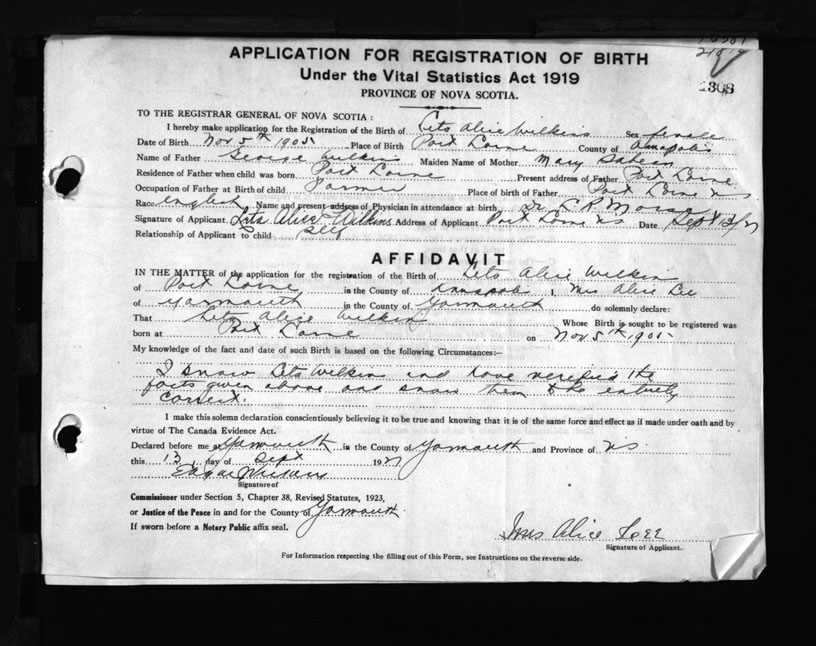 219
1308
APPLICATION FOR REGISTRATION OF BIRTH
Under the Vital Statistics Act 1919
PROVINCE OF NOVA SCOTIA.
TO THE REGISTRAR GENERAL OF NOVA SCOTIA :
I hereby make application for the Registration of the Birth of Leta Alice Wilkins Sex female
Date of Birth Nov 5th 1905 Place of Birth Port Lorne County of Annapolis
Name of Father George Wilkins Maiden Name of Mother Mary
Residence of Father when child was born Port Lorne Present address of Father Port Lorne
Occupation of Father at Birth of child Farmer Place of birth of Father Port Lorne NS
Race english Name and present address of Physician in attendance at birth Dr L. R. Morse
Signature of Applicant Leta Alice Wilkins Address of Applicant Port Lorne NS Date Sept 13/27
Relationship of Applicant to child Self
AFFIDAVIT
IN THE MATTER of the application for the registration of the Birth of Leta Alice Wilkins
of Port Lorne in the County of Annapolis I, Mrs Alice Lee
of Yarmouth in the County of Yarmouth do solemnly declare:
That Leta Alice Wilkins Whose Birth is sought to be registered was
born at Port Lorne on Nov 5th 1905
My knowledge of the fact and date of such Birth is based on the following Circumstances:—
I know Leta Wilkins and have verified the
facts given above and know them to be entirely
correct.
I make this solemn declaration conscientiously believing it to be true and knowing that it is of the same force and effect as if made under oath and by
virtue of The Canada Evidence Act.
Declared before me at Yarmouth in the County of Yarmouth and Province of NS
this 13 day of Sept 1927
Signature of
Commissioner under Section 5, Chapter 38, Revised Statutes, 1923,
or Justice of the Peace in and for the County of Yarmouth
If sworn before a Notary Public affix seal.
Mrs Alice Lee
Signature of Applicant.
For Information respecting the filling out of this Form, see Instructions on the reverse side.